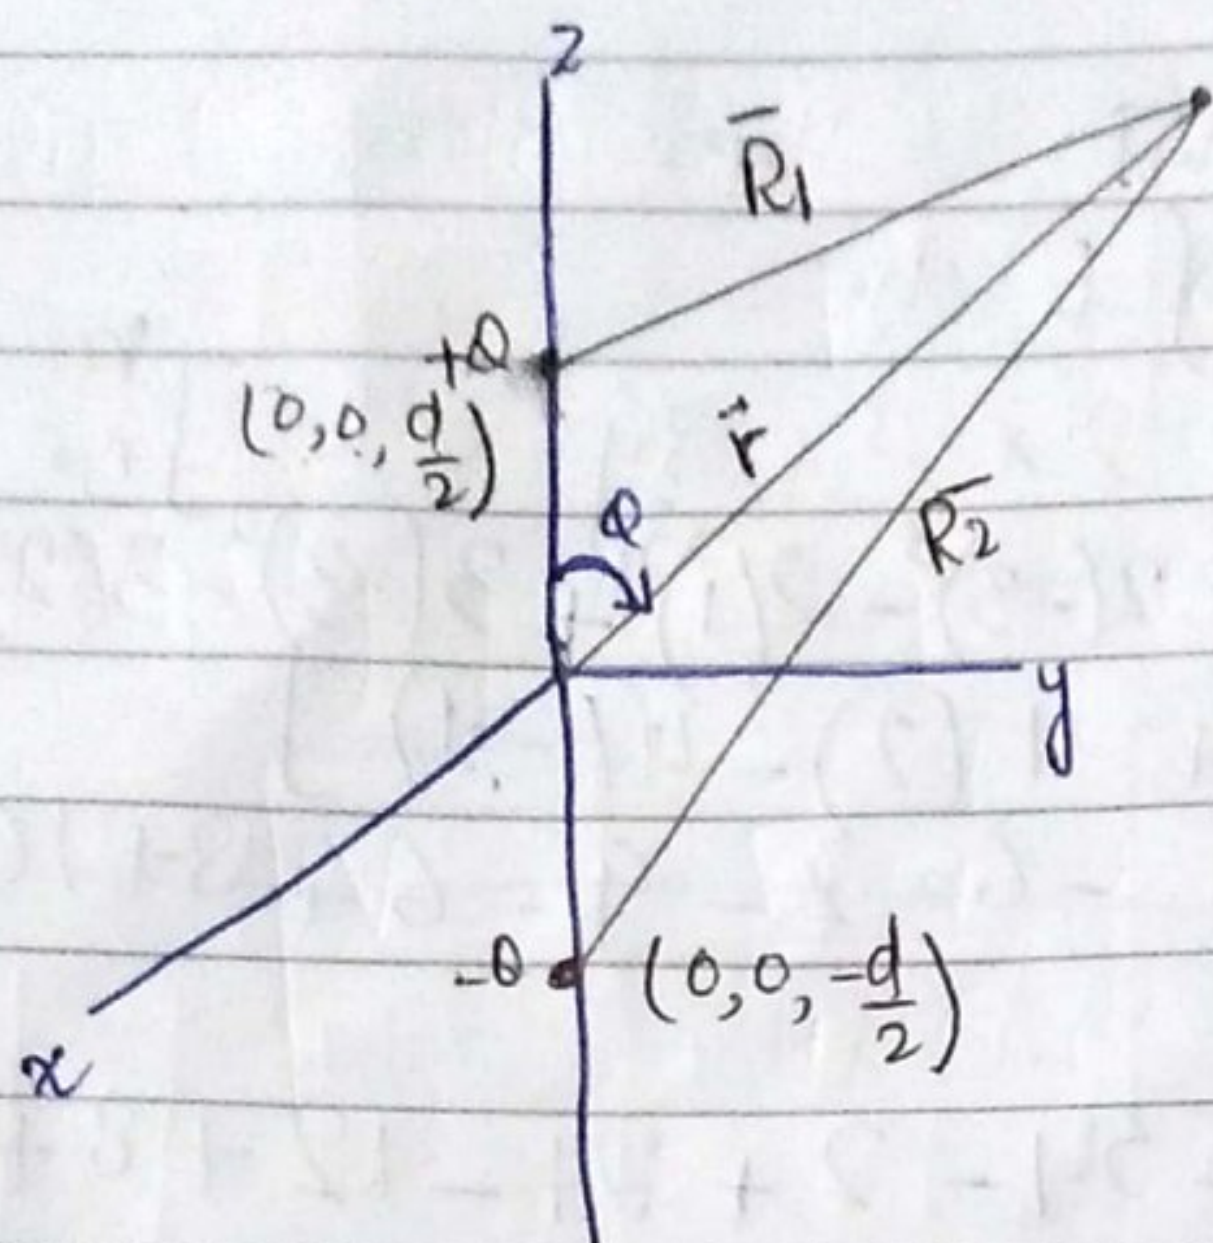 z
R̄1
+Q
(0,0,d/2)
r̄
θ
R̄2
y
-Q
(0,0,-d/2)
x